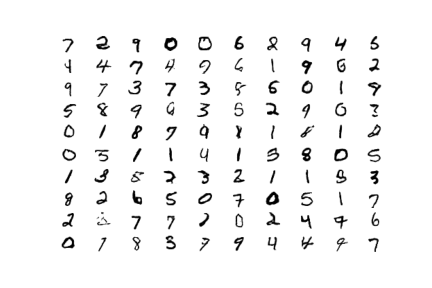 7 2 9 0 0 6 8 9 4 5
4 4 7 4 9 6 1 9 6 2
9 7 3 7 3 8 6 0 1 9
5 8 9 6 3 5 2 9 0 3
0 1 8 7 9 1 8 1 8
0 5 1 1 4 1 5 8 0 5
1 3 5 2 3 2 1 1 5 3
8 2 6 5 0 7 0 5 1 7
2 7 7 2 0 2 4 9 6
0 1 8 3 7 9 4 4 9 7